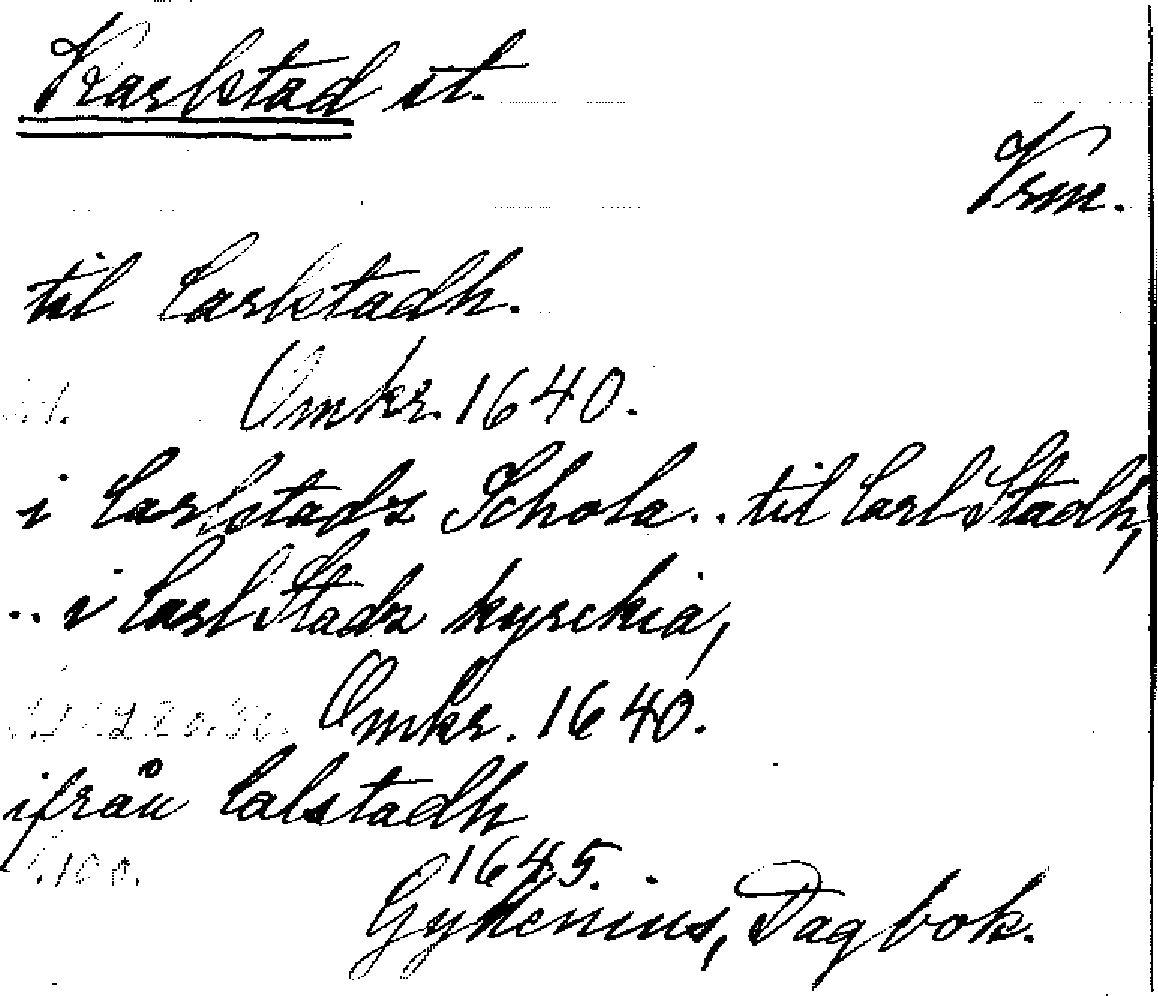 Karlstad st.
Vrm.
til Carlstadh.
Omkr. 1640.
i Carlstadz Schola.. til CarlStadh,
.. i CarlStadz kyrckia,
Omkr. 1640.
ifrån Calstadh
1645.
Gyllenius, Dagbok.